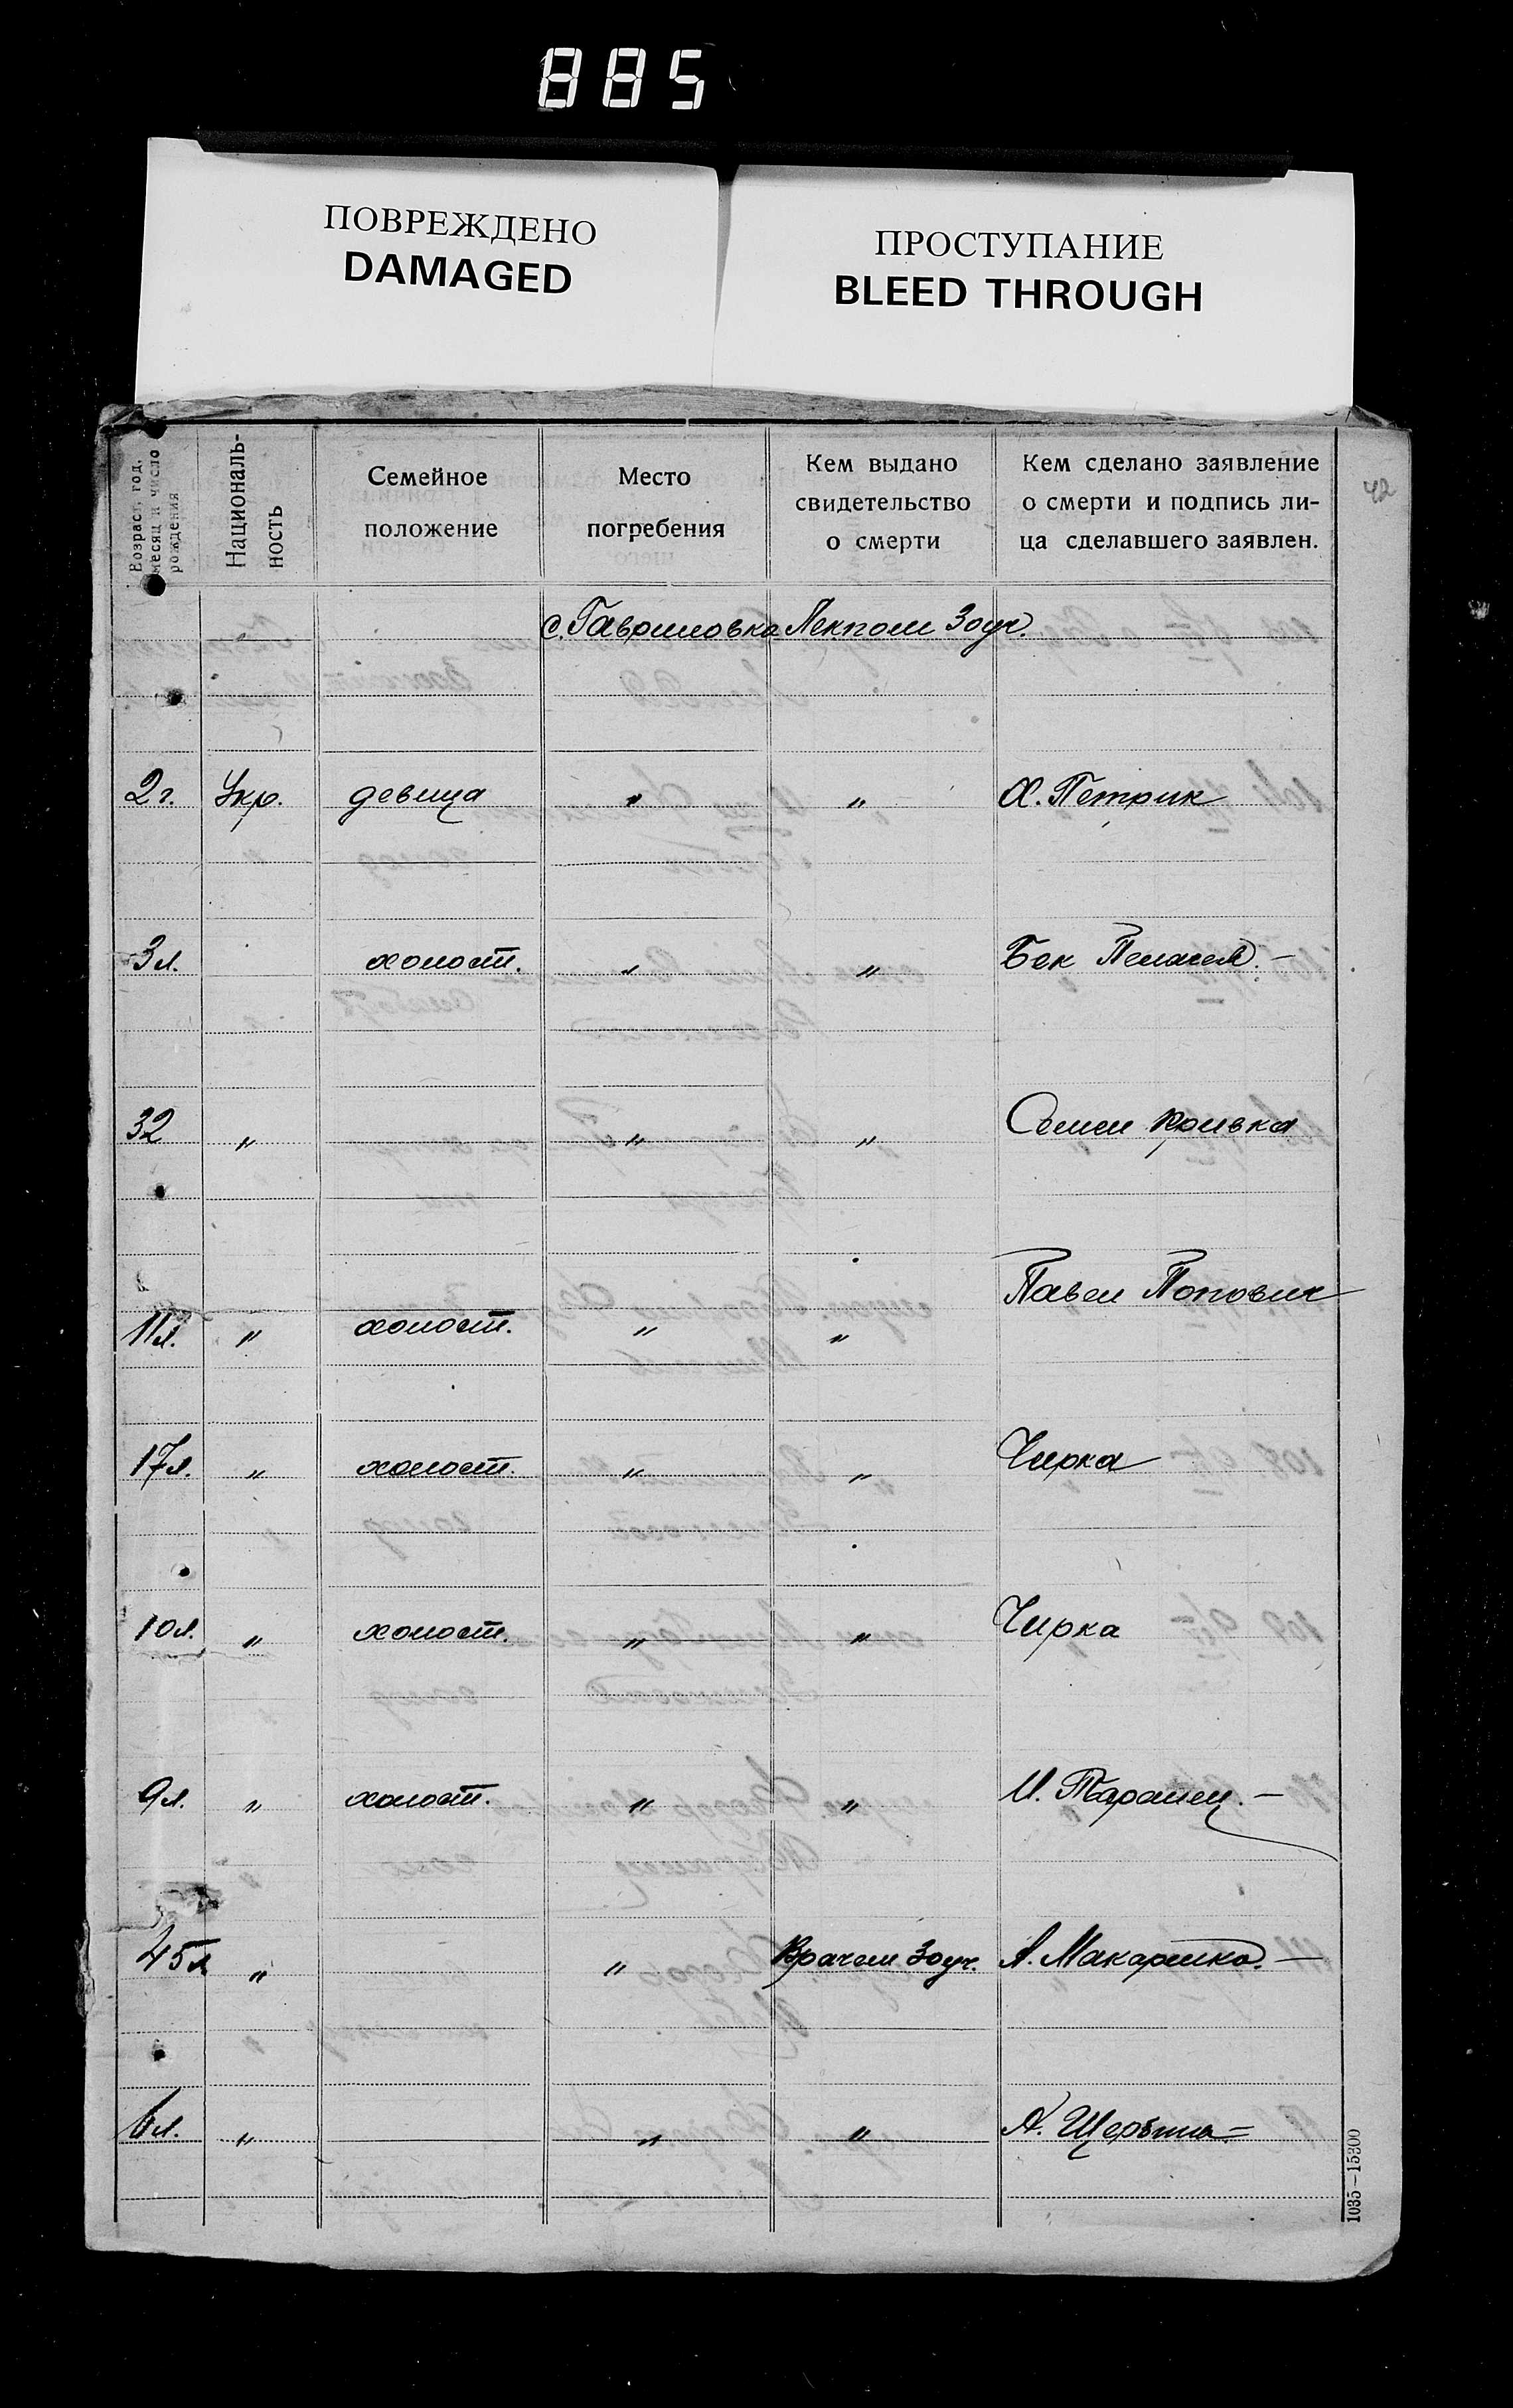 885
ПОВРЕЖДЕНО
DAMAGED
ПРОСТУПАНИЕ
BLEED THROUGH
42
Возраст, год,
месяц и число
рождения
Националь-
ность
Семейное
положение
Место
погребения
Кем выдано
свидетельство
о смерти
Кем сделано заявление
о смерти и подпись ли-
ца сделавшего заявлен.
с. Гавриловка Лекпом 3 оуч.
2 г. Укр. девица " " Х. Петрик
3 л. холост. " " Бек
32 " " " Семен Кривка
Павел Попович
11 л. " холост. " "
17 л. " холост. " " Чирка
10 л. " холост. " " Чирка
9 л. " холост. " " И. Таранец. —
45 л " " Врачем 3 оуч. А. —
6 л. " " " А. Щербина =
1035—15300